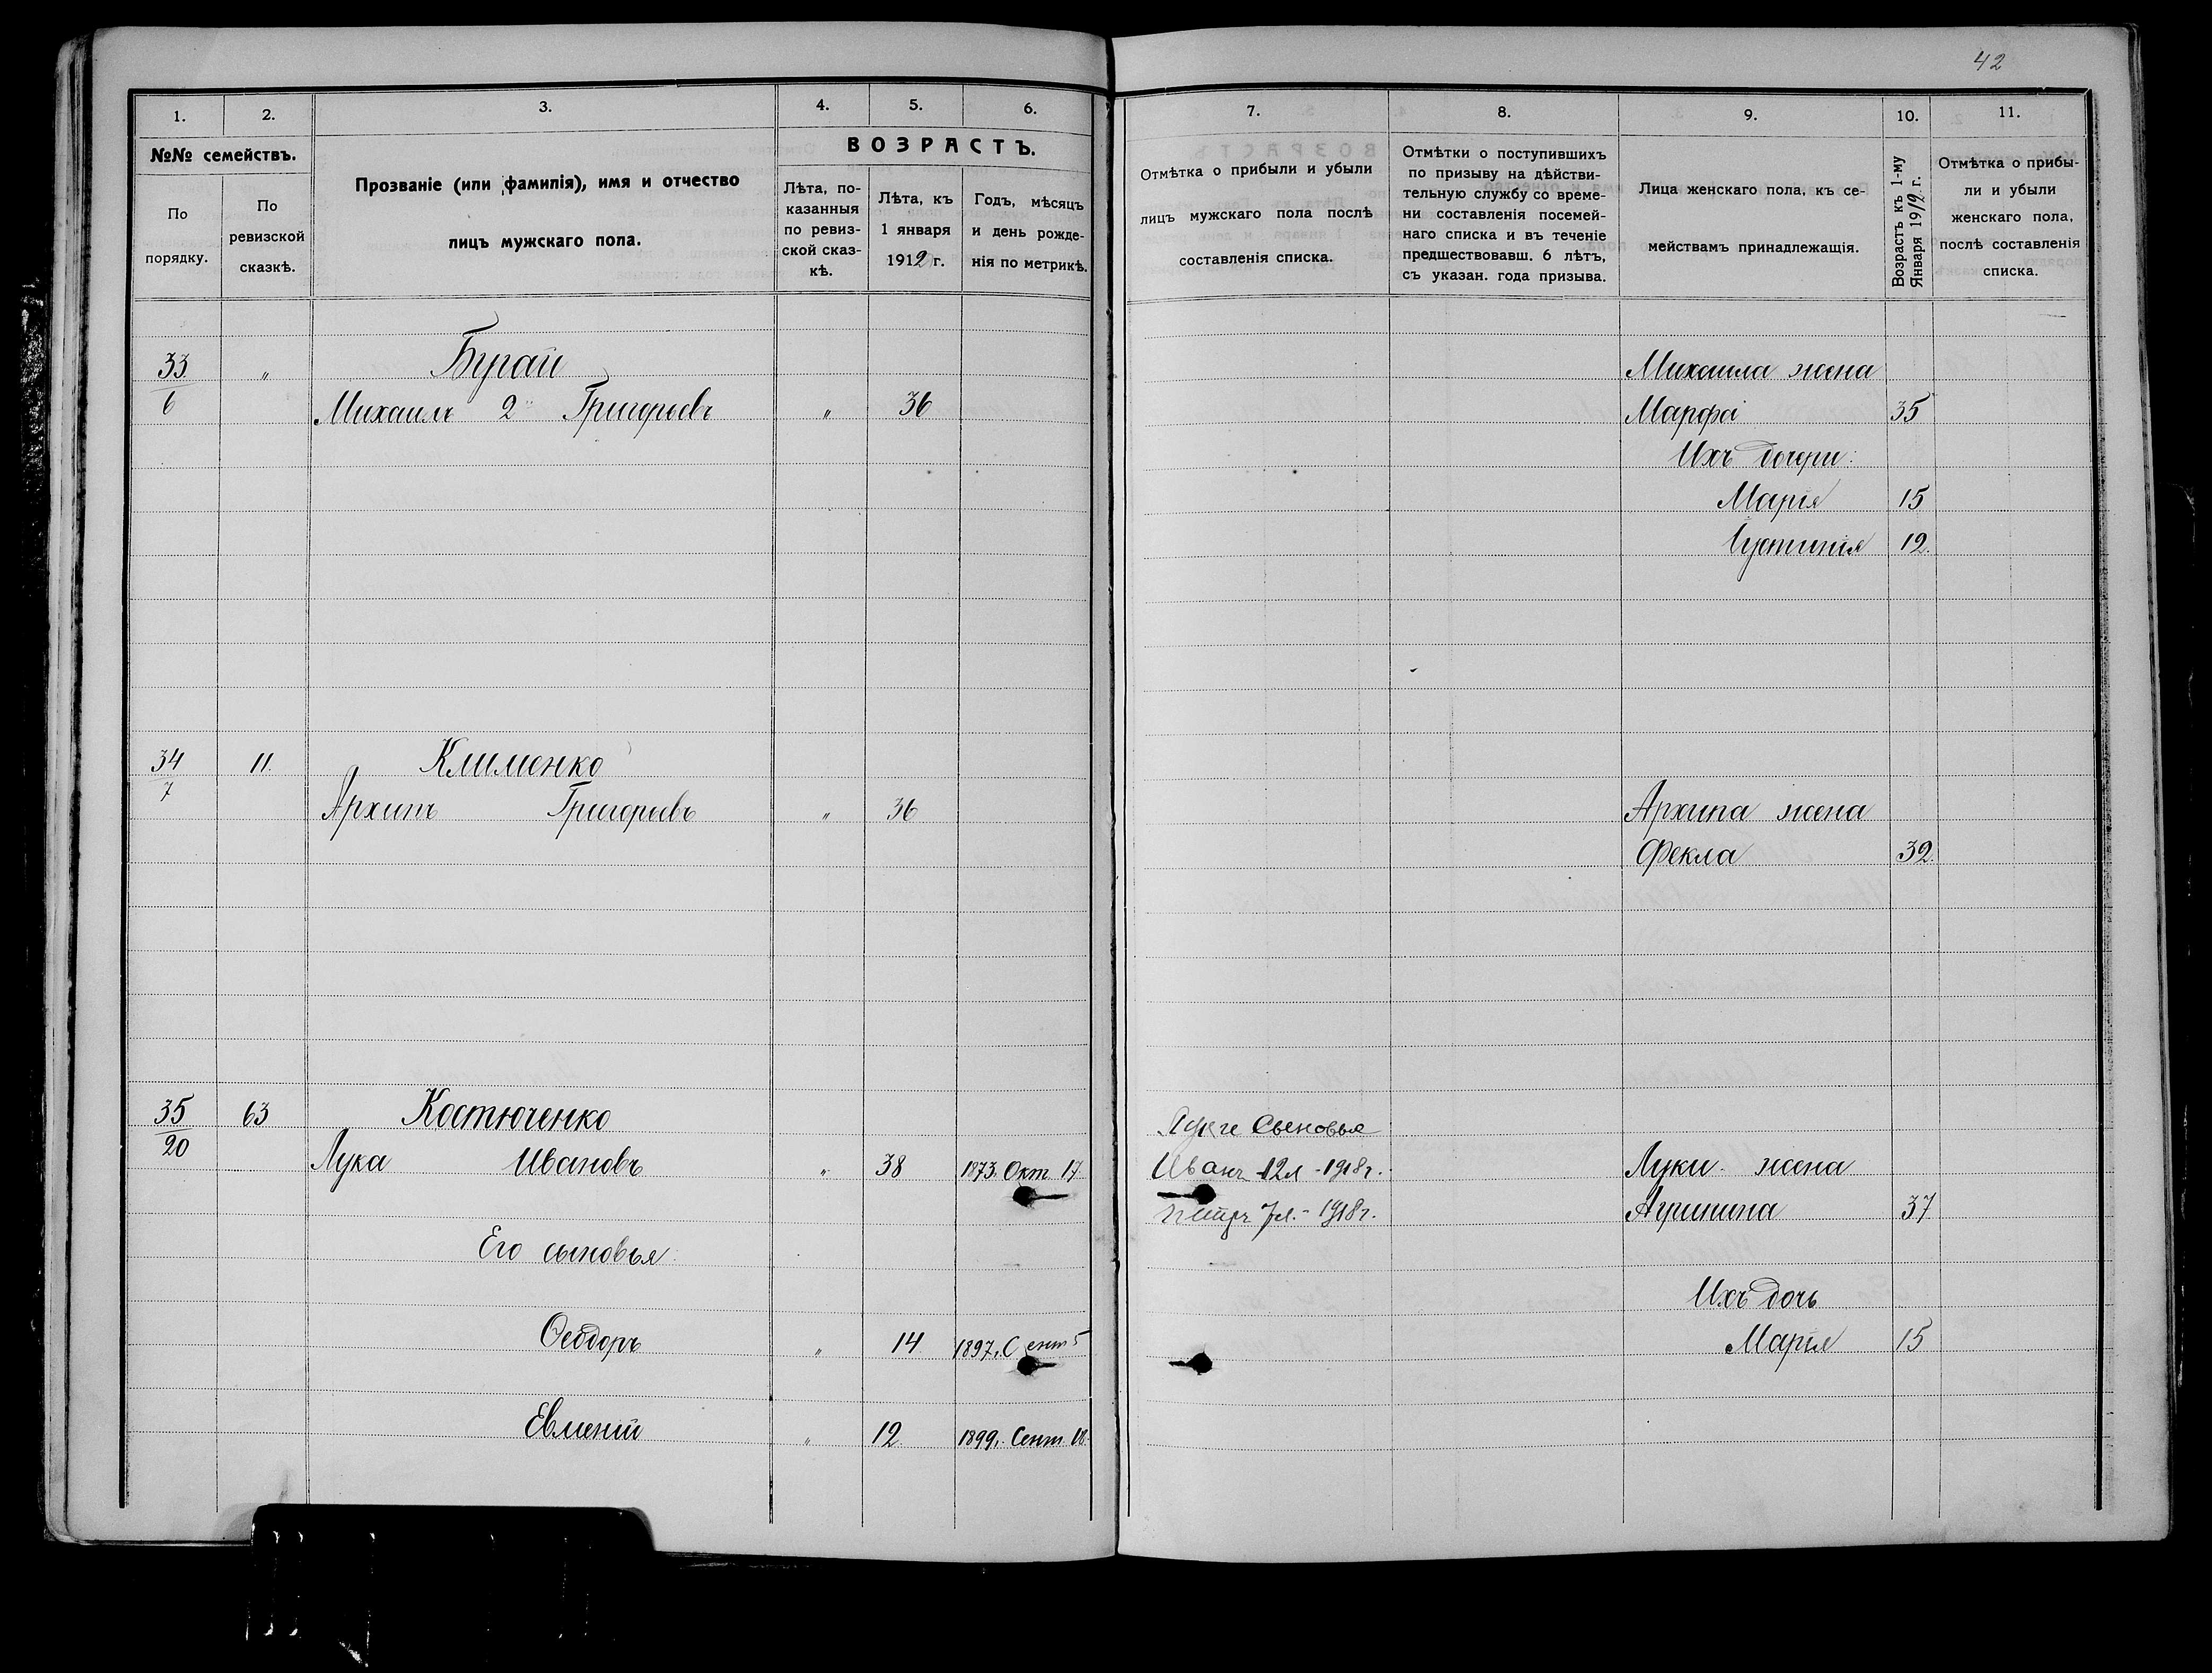 42
1.
2.
3.
4.
5.
6.
№№ семействъ.
По порядку.
По ревизской сказкѣ.
Прозваніе (или фамилія), имя и отчество
лицъ мужскаго пола.
ВОЗРАСТЪ.
Лѣта, по-
казанныя
по ревиз-
ской сказ-
кѣ.
Лѣта, къ
1 января
1912 г.
Годъ, мѣсяцъ
и день рожде-
нія по метрикѣ.
7.
8.
9.
10.
11.
Отмѣтка о прибыли и убыли
лицъ мужскаго пола послѣ
составленія списка.
Отмѣтки о поступившихъ
по призыву на дѣйстви-
тельную службу со време-
ни составленія посемей-
наго списка и въ теченіе
предшествовавш. 6 лѣтъ,
съ указан. года призыва.
Лица женскаго пола, къ се-
мействамъ принадлежащія.
Возрастъ къ 1-му
Января 1912 г.
Отмѣтка о прибы-
ли и убыли
женскаго пола,
послѣ составленія
списка.
33 „ Бугай
6 Михаилъ 2 Григорьевъ „ 36
Михаила жена
Марфа 35
Ихъ дочери:
Марія 15
Іустинія 12.
34 11. Клименко
7 Архипъ Григорьевъ „ 36
Архипа жена
Фекла 32.
35 63 Костюченко
20 Лука Ивановъ „ 38 1873. Окт. 17.
Его сыновья:
Ѳеодоръ „ 14 1897. Сент 5
Евменій „ 12. 1899. Сент. 18.
Сыновья
Иванъ 12л - 1918г.
Петръ 7л. - 1918г.
Луки жена
Агрипина 37
Ихъ дочь
Марія 15